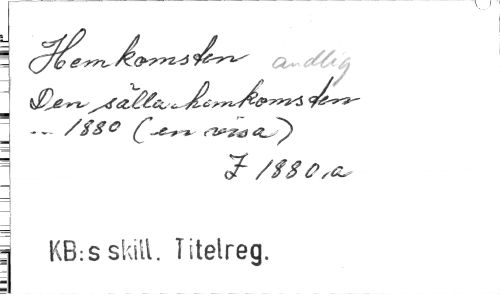 Hemkomsten andlig
Den sälla hemkomsten
... 1880 (en visa)
Z 1880,a
KB:s skill. Titelreg.